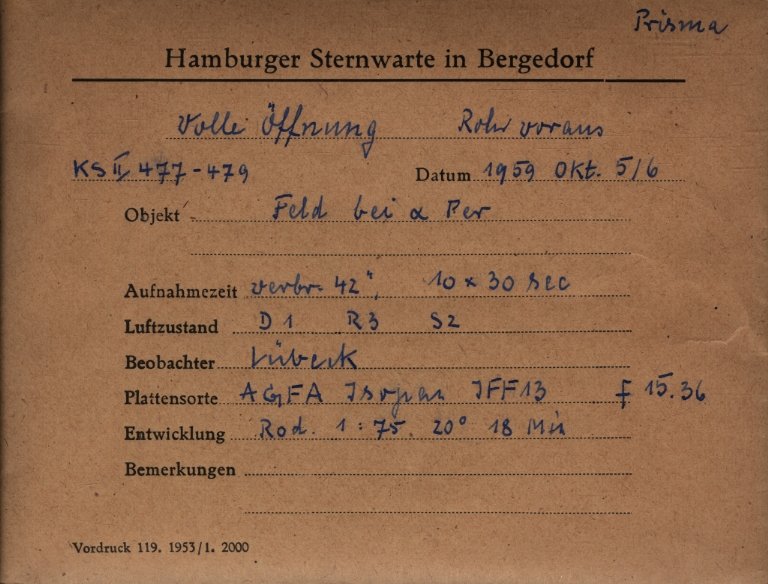 Prisma
Hamburger Sternwarte in Bergedorf
Volle Öffnung Rohr voraus
KS II 477-479 Datum 1959 Okt. 5/6
Objekt Feld bei α Per
Aufnahmezeit verbr. 42", 10 x 30 sec
Luftzustand D1 R3 S2
Beobachter Lübeck
Plattensorte AGFA Isopan IFF13 f 15.36
Entwicklung Rod. 1:75 20° 18 Min
Bemerkungen
Vordruck 119. 1953/1. 2000